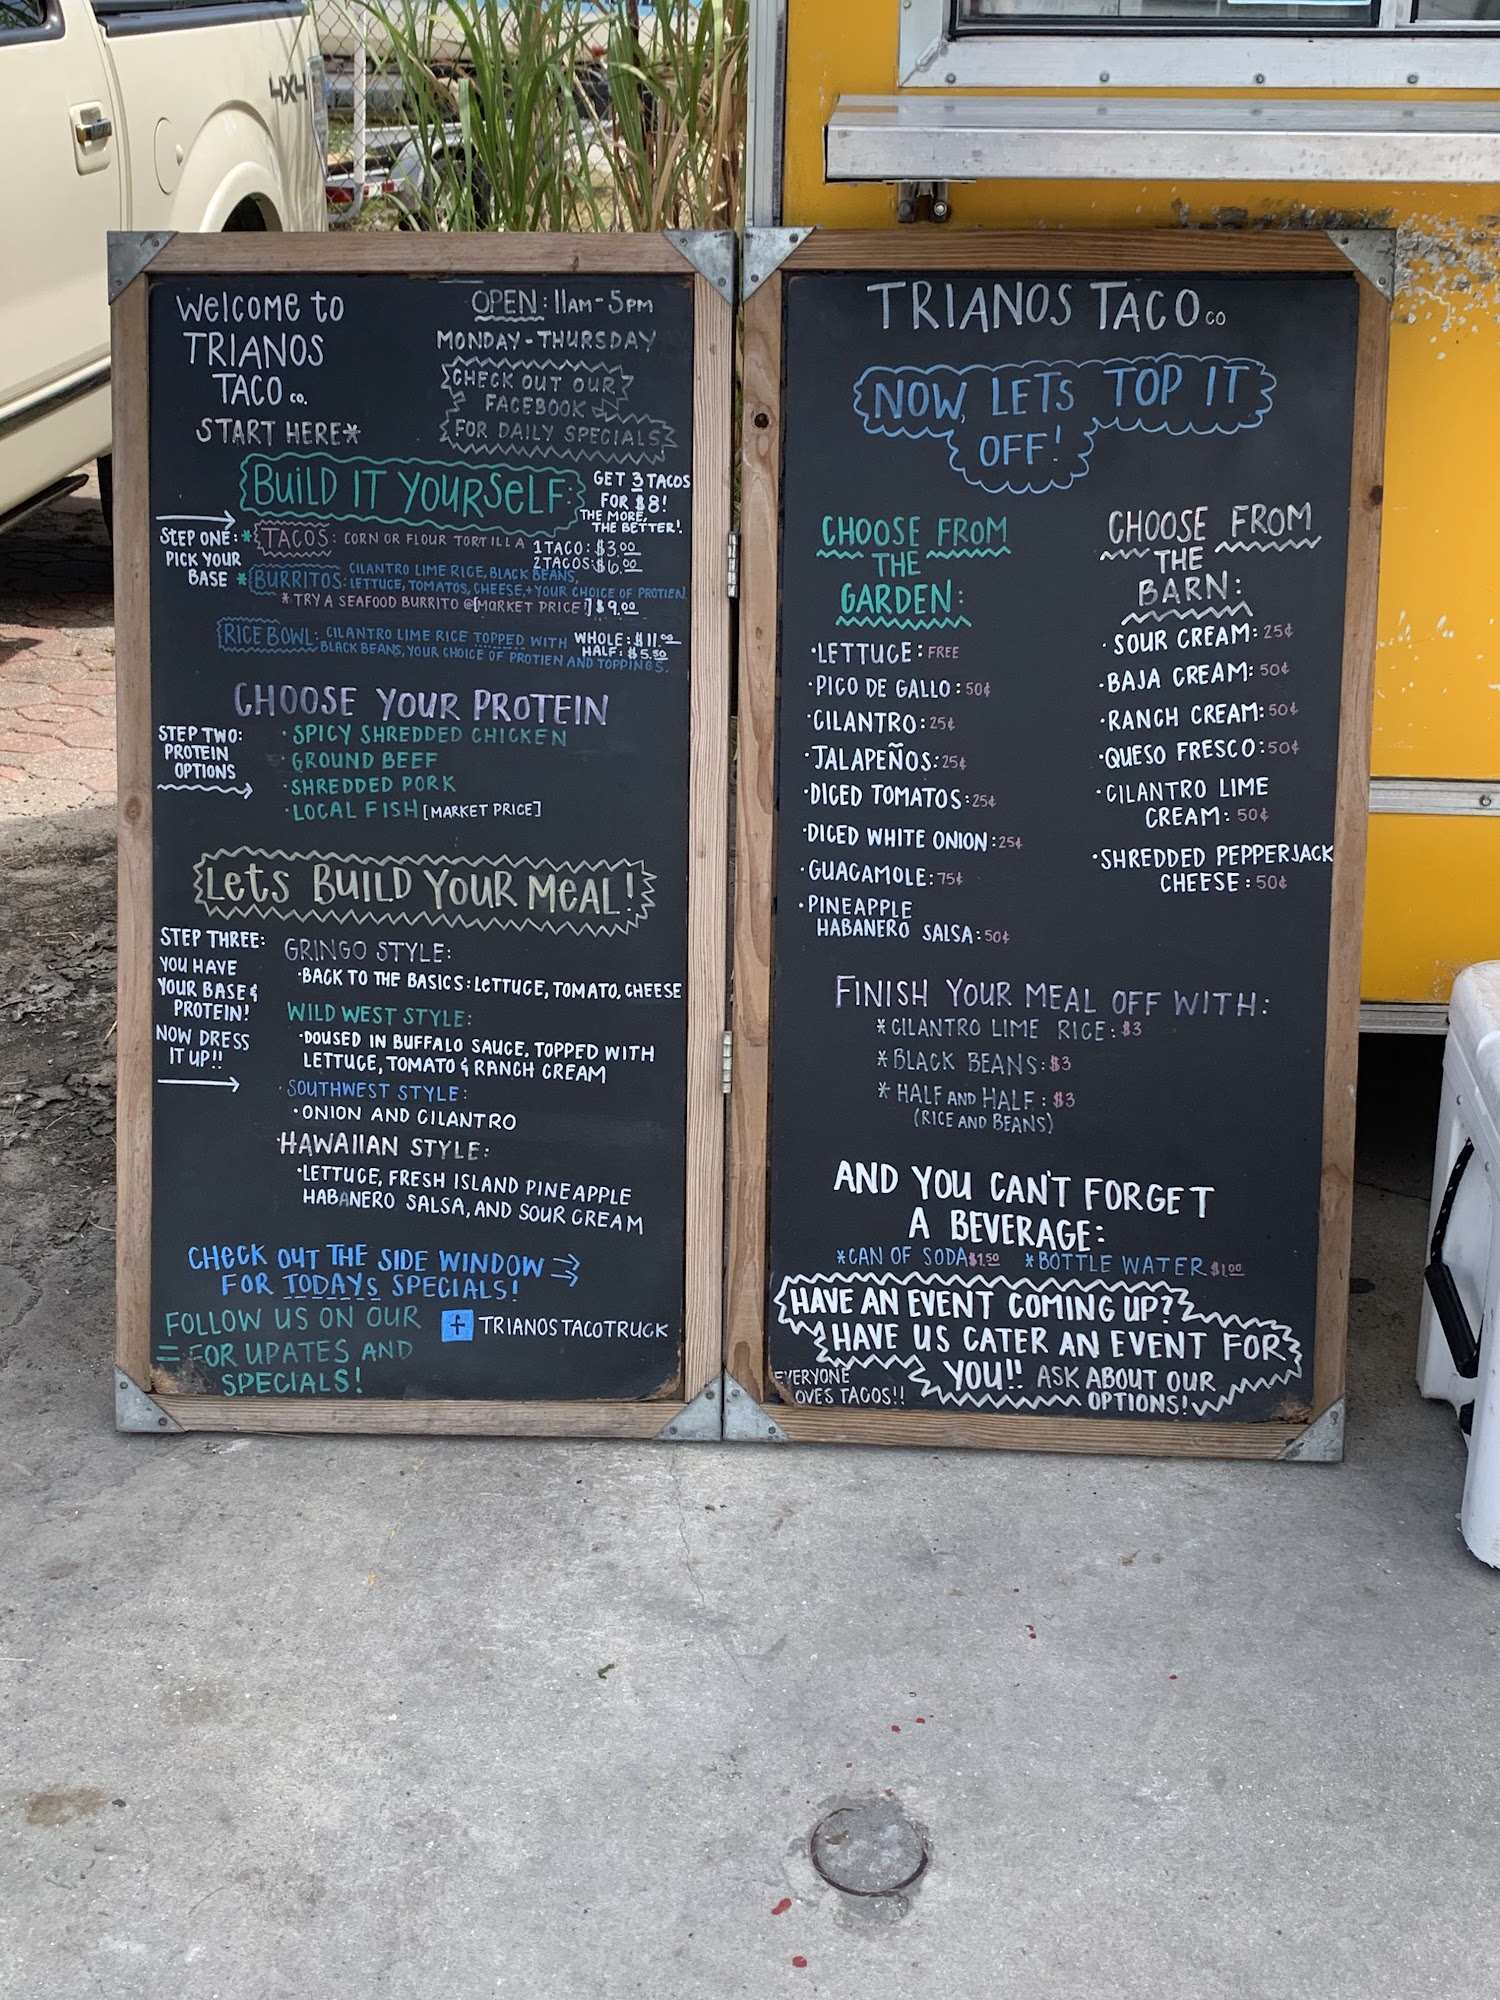 4X4
Welcome to
TRIANOS
TACO co.
START HERE*
OPEN: 11AM-5PM
MONDAY-THURSDAY
CHECK OUT OUR
FACEBOOK
FOR DAILY SPECIALS
BUILD IT YOURSELF:
GET 3 TACOS
FOR $8!
THE MORE,
THE BETTER!
STEP ONE:
PICK YOUR
BASE
*TACOS: CORN OR FLOUR TORTILLA
1 TACO: $3.00
2 TACOS: $6.00
*BURRITOS: CILANTRO LIME RICE, BLACK BEANS,
LETTUCE, TOMATOS, CHEESE, + YOUR CHOICE OF PROTIEN
*TRY A SEAFOOD BURRITO @[MARKET PRICE!] $9.00
RICE BOWL: CILANTRO LIME RICE TOPPED WITH
BLACK BEANS, YOUR CHOICE OF PROTIEN AND TOPPINGS.
WHOLE: $11.00
HALF: $5.50
CHOOSE YOUR PROTEIN
STEP TWO:
PROTEIN
OPTIONS
·SPICY SHREDDED CHICKEN
·GROUND BEEF
·SHREDDED PORK
·LOCAL FISH [MARKET PRICE]
LETS BUILD YOUR MEAL!
STEP THREE:
YOU HAVE
YOUR BASE &
PROTEIN!
NOW DRESS
IT UP!!
GRINGO STYLE:
·BACK TO THE BASICS: LETTUCE, TOMATO, CHEESE
WILD WEST STYLE:
·DOUSED IN BUFFALO SAUCE, TOPPED WITH
LETTUCE, TOMATO & RANCH CREAM
·SOUTHWEST STYLE:
·ONION AND CILANTRO
·HAWAIIAN STYLE:
·LETTUCE, FRESH ISLAND PINEAPPLE
HABANERO SALSA, AND SOUR CREAM
CHECK OUT THE SIDE WINDOW
FOR TODAYS SPECIALS!
FOLLOW US ON OUR
f TRIANOSTACOTRUCK
= FOR UPATES AND
SPECIALS!
TRIANOS TACO CO
NOW, LETS TOP IT
OFF!
CHOOSE FROM
THE
GARDEN:
·LETTUCE: FREE
·PICO DE GALLO: 50¢
·CILANTRO: 25¢
·JALAPEÑOS: 25¢
·DICED TOMATOS: 25¢
·DICED WHITE ONION: 25¢
·GUACAMOLE: 75¢
·PINEAPPLE
HABANERO SALSA: 50¢
CHOOSE FROM
THE
BARN:
·SOUR CREAM: 25¢
·BAJA CREAM: 50¢
·RANCH CREAM: 50¢
·QUESO FRESCO: 50¢
·CILANTRO LIME
CREAM: 50¢
·SHREDDED PEPPERJACK
CHEESE: 50¢
FINISH YOUR MEAL OFF WITH:
*CILANTRO LIME RICE: $3
*BLACK BEANS: $3
*HALF AND HALF: $3
(RICE AND BEANS)
AND YOU CAN'T FORGET
A BEVERAGE:
*CAN OF SODA $1.50 *BOTTLE WATER $1.00
HAVE AN EVENT COMING UP??
HAVE US CATER AN EVENT FOR
YOU!! ASK ABOUT OUR
OPTIONS!
EVERYONE
OVES TACOS!!